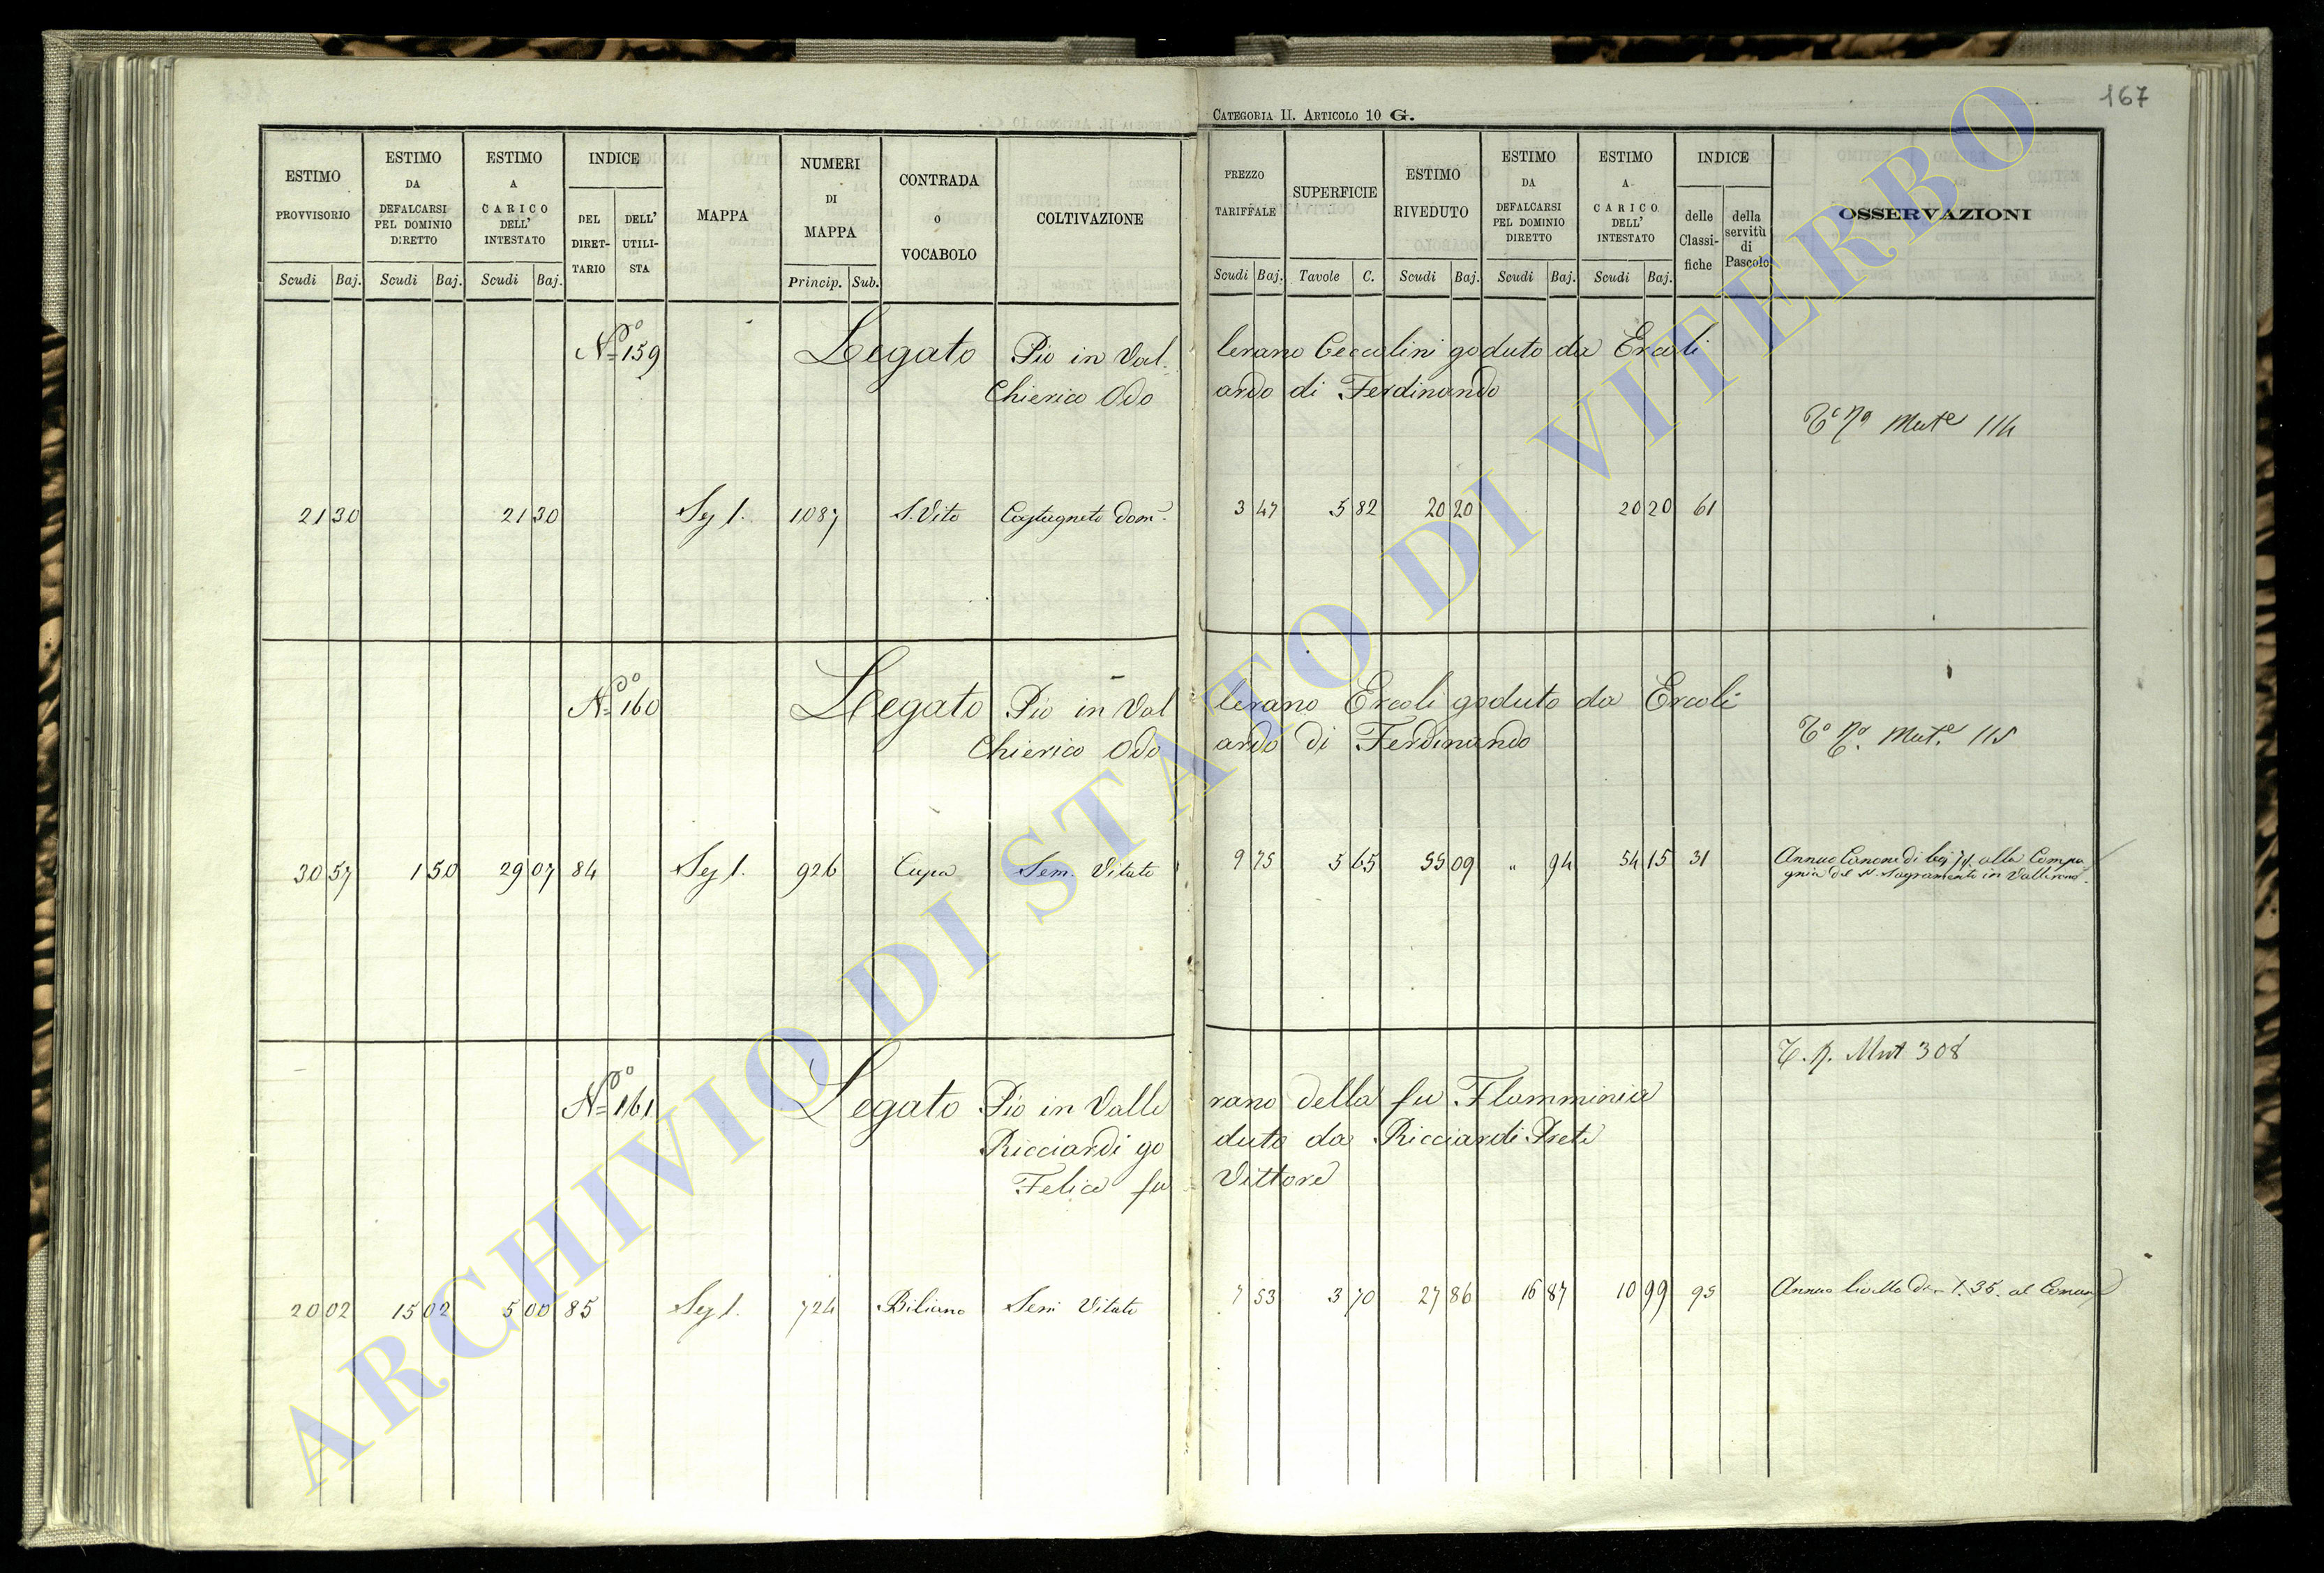 167
CATEGORIA II. ARTICOLO 10 G.
ESTIMO PROVVISORIO
ESTIMO DA DEFALCARSI PEL DOMINIO DIRETTO
ESTIMO A CARICO DELL' INTESTATO
INDICE
DEL DIRETTARIO
DELL' UTILISTA
MAPPA
NUMERI DI MAPPA
CONTRADA O VOCABOLO
COLTIVAZIONE
PREZZO TARIFFALE
SUPERFICIE
ESTIMO RIVEDUTO
ESTIMO DA DEFALCARSI PEL DOMINIO DIRETTO
ESTIMO A CARICO DELL' INTESTATO
INDICE
delle Classifiche
della servitù di Pascolo
OSSERVAZIONI
Scudi Baj. Scudi Baj. Scudi Baj. Princip. Sub. Scudi Baj. Tavole C. Scudi Baj. Scudi Baj. Scudi Baj.
No 159 Legato Pio in Vallerano Ceccolini goduto da Ercoli
Chierico Odoardo di Ferdinando
Mute 114
21 30 21 30 Sez 1. 1087 S. Vito Castagneto Dom. 3 47 5 82 20 20 20 20 61
No 160 Legato Pio in Vallerano Ercoli goduto da Ercoli
Chierico Odoardo di Ferdinando
Mute 115
30 57 1 50 29 07 84 Sez 1. 926 Cupa Sem. Vitato 9 75 5 65 55 09 " 94 54 15 31 Annuo Canone di alla Compa
gnia del SS. Sagramento in Vallerano
Mut 308
No 161 Legato Pio in Vallerano della fu Flamminia
Ricciardi goduto da Ricciardi Prete
Felice fu Vittore
20 02 15 02 5 00 85 Sez 1. 724 Biliano Sem Vitato 7 53 3 70 27 86 16 87 10 99 95 Annuo livello di 1.35. al Comune
ARCHIVIO DI STATO DI VITERBO